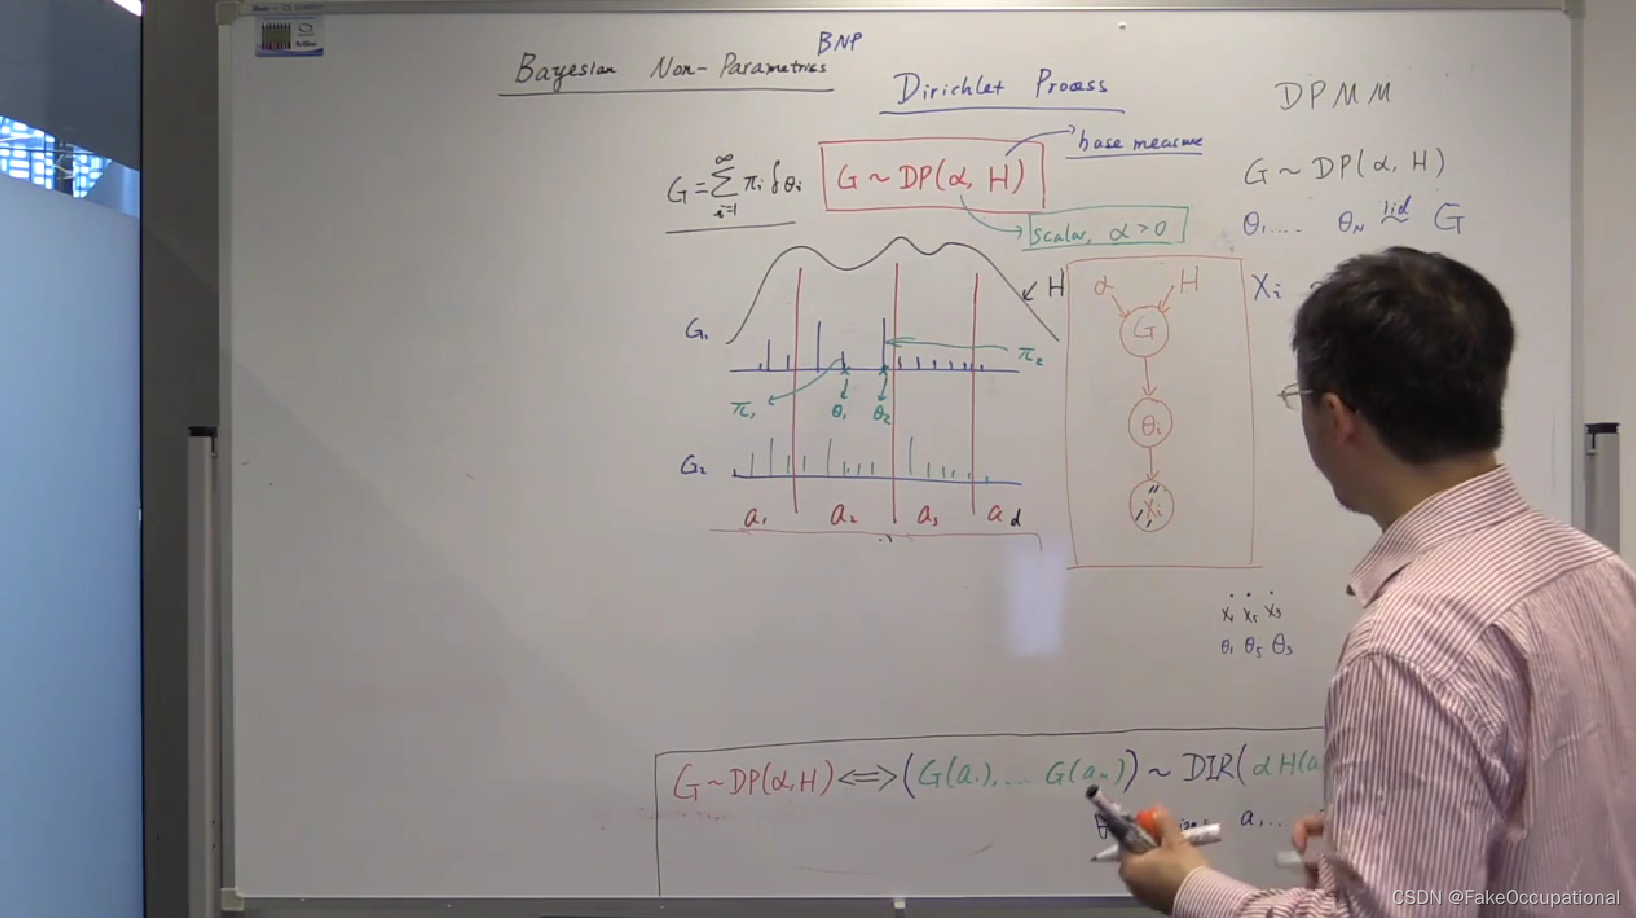 BNP
Bayesian Non-Parametrics
Dirichlet Process
DPMM
base measure
G = ∑_{i=1}^{∞} π_i δ_{θ_i}
G ~ DP(α, H)
scalar, α > 0
G ~ DP(α, H)
θ_1 .... θ_N iid ~ G
X_i
H
G_1
π_2
π_1 θ_1 θ_2
G_2
a_1 a_2 a_3 a_d
α H
G
θ_i
X_i
x_1 x_5 x_3
θ_1 θ_5 θ_3
G ~ DP(α, H) <=> (G(a_1), .... G(a_n)) ~ DIR( α H(a
a_1 ...
CSDN @FakeOccupational